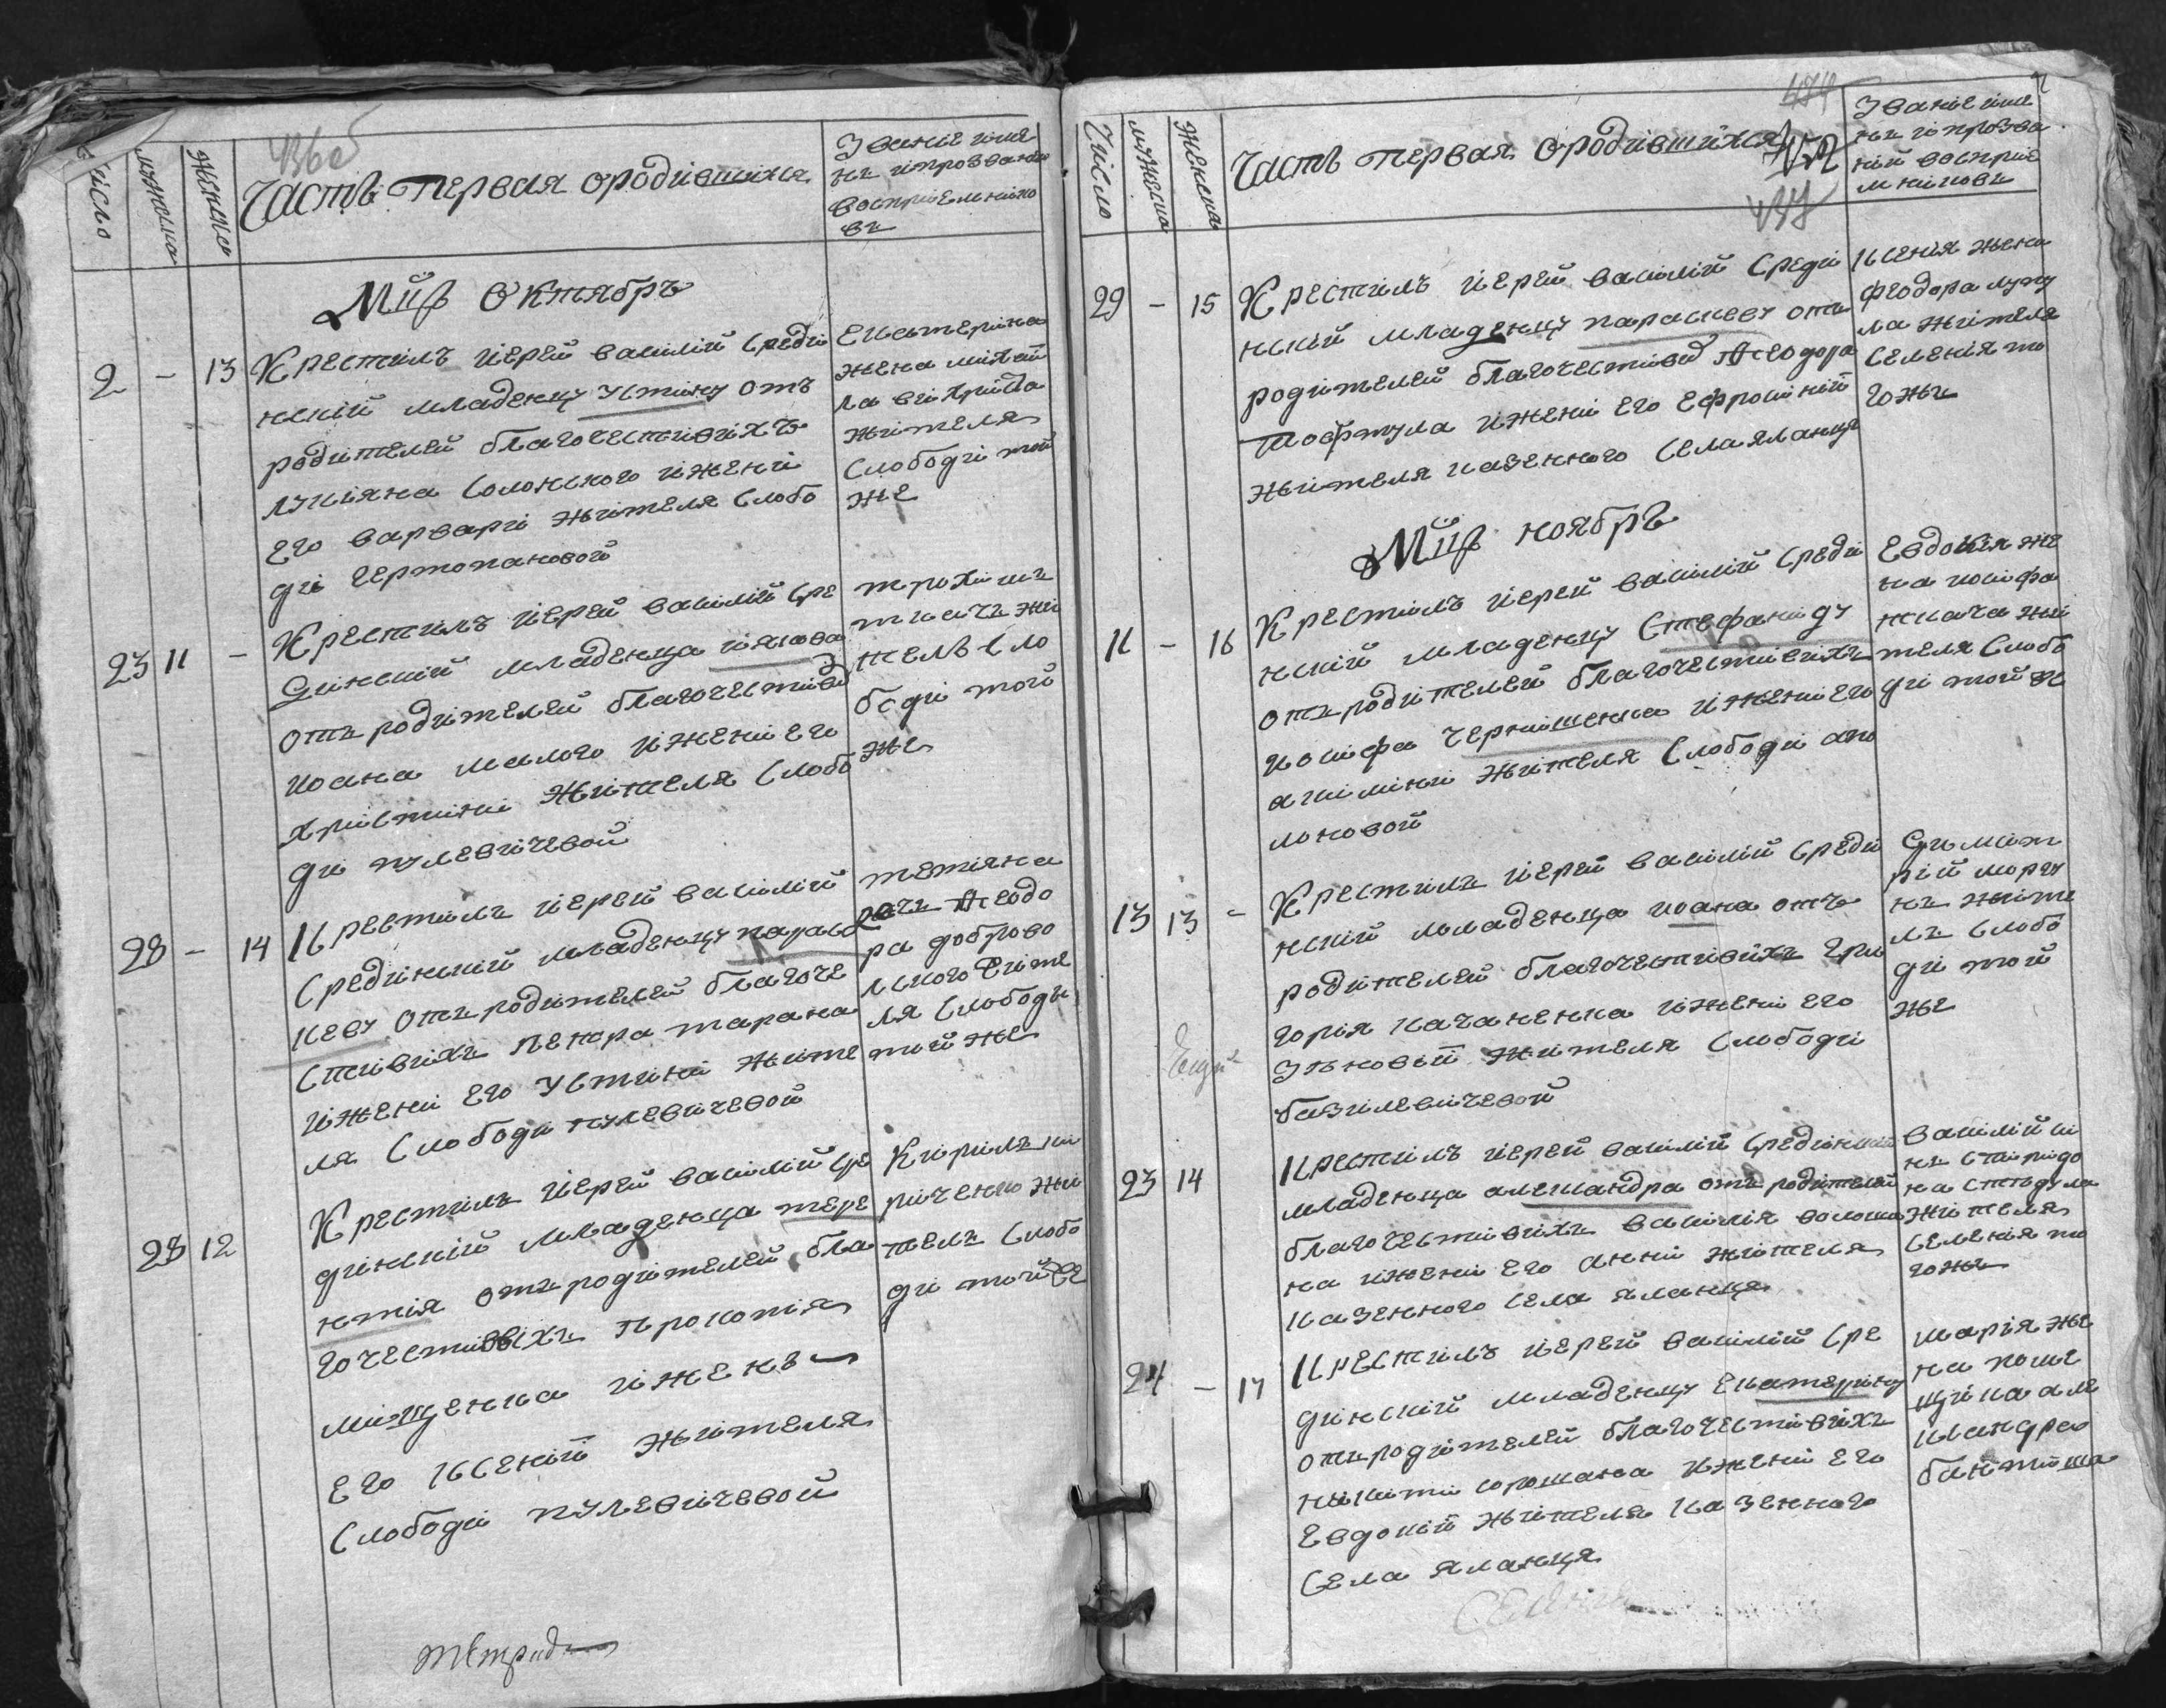 436об
Число
мужеска
женска
Часть первая ородившихся
Званіе іме
нъ іпрозвани
воспріемніко
въ
Мцъ Октябръ
2 – 13
Крестилъ іерей василій Среди
нскій младенцу Устину отъ
родителей благочестивіхъ
лукіяна Солонского іжені
его варварі жітеля Слобо
ді чертопановой
Екатеріна
жена міхай
ла віхріста
жителя
Слободі той
же
23 11 –
Крестилъ іерей василій Сре
дінскій младенца іякова
отъ родітелей благочестівъ
иоана малого іжені его
христіні жітеля Слобо
ді пулевічевой
трохімъ
ткачъ жі
тель Сло
боді той
же
28 – 14
Крестилъ іерей василій
Средінскій младенцу парас
кеву отъ родителей благоче
стивіхъ петра тарана
іжені его Устині жите
ля Слободи пулевічевой
тетіяна
дочъ Феодо
ра доброво
лского жіте
ля Слободы
той же
28 12
Крестилъ іерей василій Сре
дінскій младенца тере
нтія отъ родітелей бла
гочестивіхъ прокопія
міщенка іжень
его Ксеній жітеля
Слободі пулевічевой
Кирилъ кі
риченко жі
тель Слобо
ді той же
474
437
Число
мужеска
женска
Часть первая ородившихся
Званіе іме
нъ іпрозва
ній воспріе
мніковъ
29 – 15
Крестилъ іерей василій Среді
нскій младенцу параскеву отъ
родітелей благочестівъ Феодора
товтула іжені его Ефросіній
жителя казенного Села яланця
Ксенія жена
феодора лупу
ла жітеля
Селенія то
гожъ
Мцъ ноябръ
11 – 16
Крестилъ іерей василій Среди
нскій младенцу Стефаниду
отъ родителей благочестивіхъ
иосіфа Чернішенка іжені его
акиліні жітеля Слободі
моновой
Евдокія же
на иосіфа
ткача жі
теля Слобо
ді той же
13 13 –
Крестилъ іерей василій Среди
нскій младенца иоана отъ
родителей благочестивіхъ Гри
горія качаненка іжені его
Зіновій жителя Слободі
базилевічевой
Диміт
рій
нъ жите
лъ Слобо
ді той
же
23 14
Крестилъ іерей василій Средінскій
младенца александра отъ родителей
благочестівіхъ василія волоши
на іжені его Анні жітеля
Казенного Села яланця
василій сі
нъ Спирідо
на
жителя
Селенія то
гожъ
24 – 17
Крестилъ іерей василій Сре
дінскій младенцу Екатеріну
отъ родітелей благочестівіхъ
нікіти іжені его
Евдокій жітеля Казенного
Села яланця
марія же
на поме
щіка але
ксандра